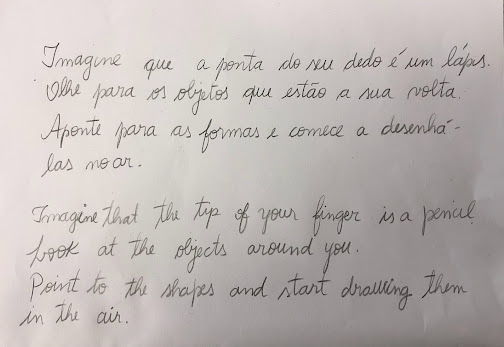 Imagine que a ponta do seu dedo é um lápis.
Olhe para os objetos que estão a sua volta.
Aponte para as formas e comece a desenhá-
las no ar.
Imagine that the tip of your finger is a pencil
Look at the objects around you.
Point to the shapes and start drawing them
in the air.